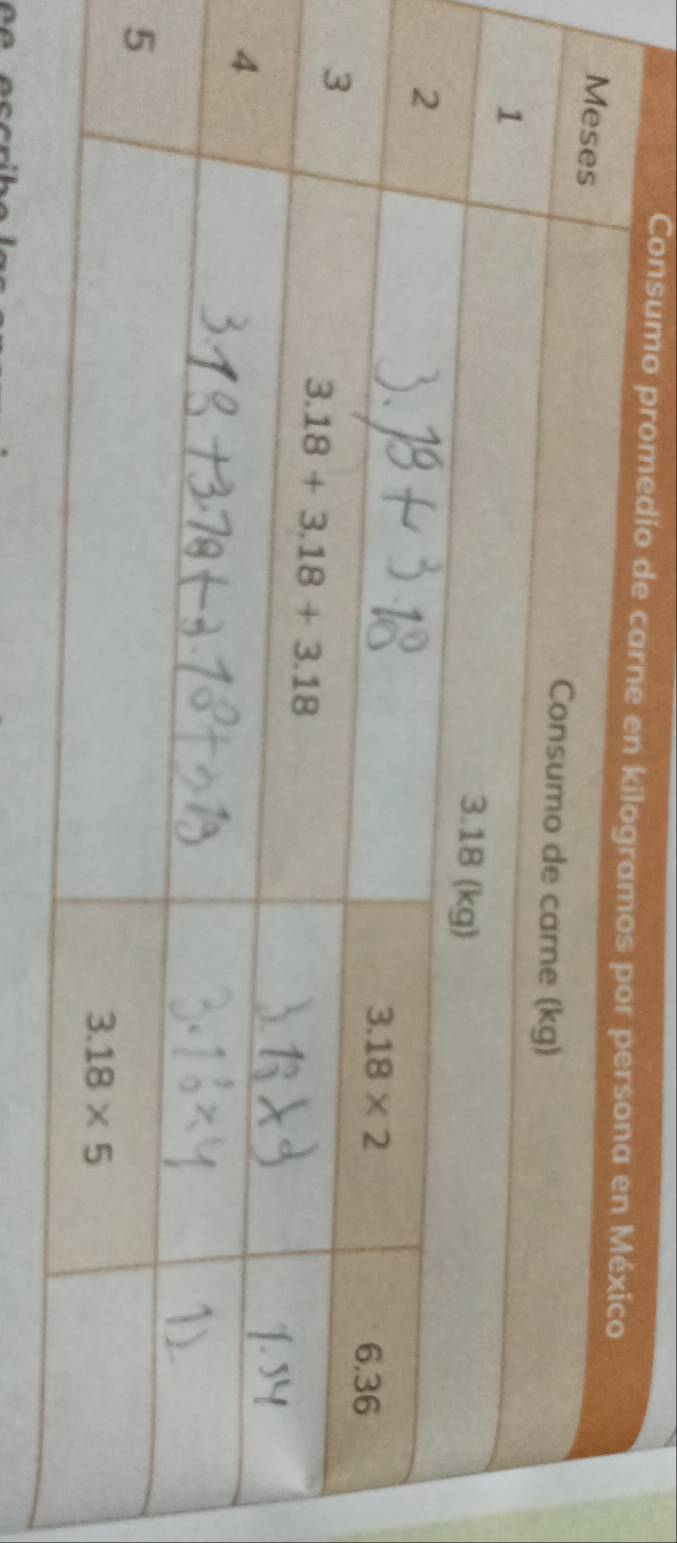 Consumo promedio de carne en kilogramos por persona en México
Meses Consumo de carne (kg)
1 3.18 (kg)
2 3.18 + 3.18 3.18 × 2 6.36
3 3.18 + 3.18 + 3.18 3.18 x 3
4 3.18 + 3.18 + 3.18 + 3.18 3.18 x 4 12
5 3.18 × 5